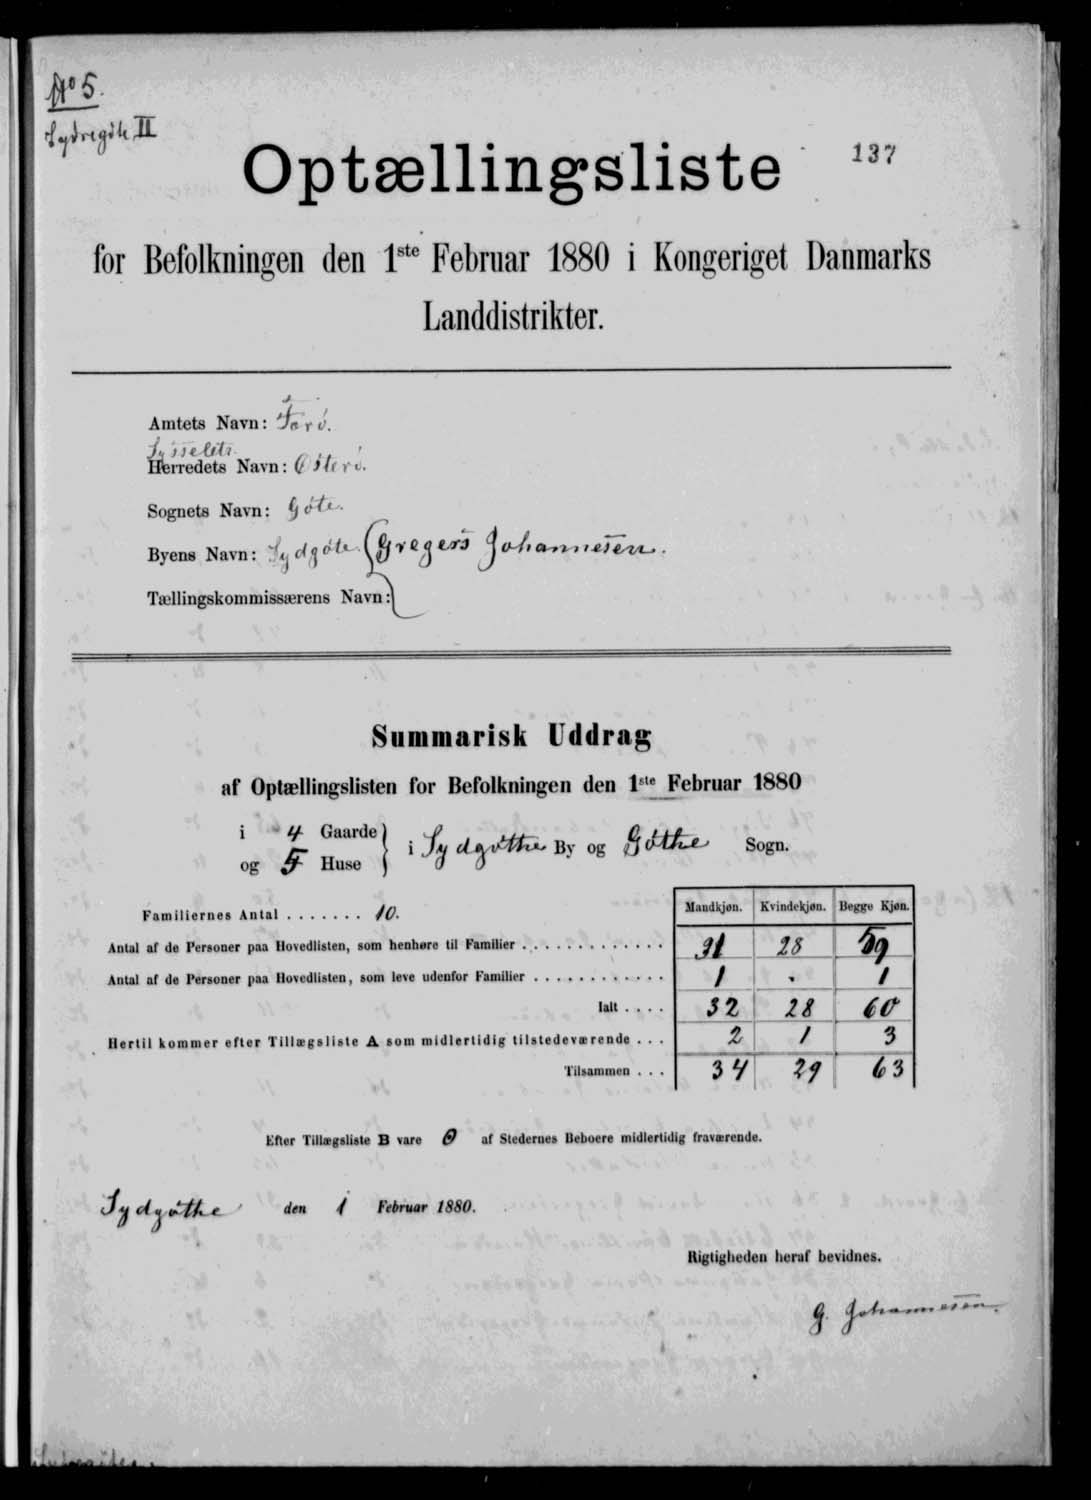 No 5.
Sydregöte II
137
Optællingsliste
for Befolkningen den 1ste Februar 1880 i Kongeriget Danmarks
Landdistrikter.
Amtets Navn: Færö.
Sysselets
Herredets Navn: Österö.
Sognets Navn: Göte.
Byens Navn: Sydgöte. (Gregers Johannesen.
Tællingskommissærens Navn:)
Summarisk Uddrag
af Optællingslisten for Befolkningen den 1ste Februar 1880
i 4 Gaarde
og 5 Huse } i Sydgöthe By og Göthe Sogn.
Mandkjøn. Kvindekjøn. Begge Kjøn.
Familiernes Antal ....... 10.
Antal af de Personer paa Hovedlisten, som henhøre til Familier ............. 31 28 59
Antal af de Personer paa Hovedlisten, som leve udenfor Familier ............ 1 . 1
Ialt .... 32 28 60
Hertil kommer efter Tillægsliste A som midlertidig tilstedeværende ... 2 1 3
Tilsammen ... 34 29 63
Efter Tillægsliste B vare 0 af Stedernes Beboere midlertidig fraværende.
Sydgöthe den 1 Februar 1880.
Rigtigheden heraf bevidnes.
G. Johannesen.